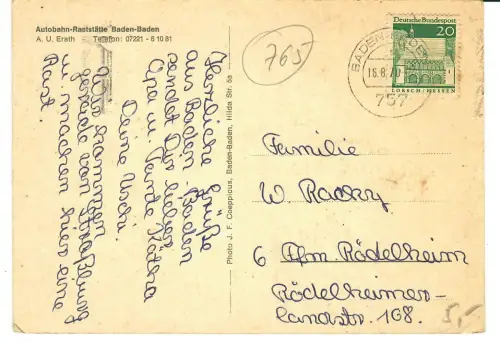 Autobahn-Raststätte Baden-Baden
A. U. Erath – Telefon: 07221 - 6 10 81
765
Deutsche Bundespost
20
LORSCH / HESSEN
BADEN-BADEN
16.8.70
757
Herzliche Grüße
aus Baden Baden
sendet Dir lieber
Opa u. Tante Käthe
Deine Uschi.
Wir kommen
gerade von Straßburg
u. machen hier eine
Rast.
Photo J. F. Coeppicus, Baden-Baden, Hilda Str. 5a
Familie
W. Racky
6 Ffm. Rödelheim
Rödelheimer-
landstr. 168.
5,-